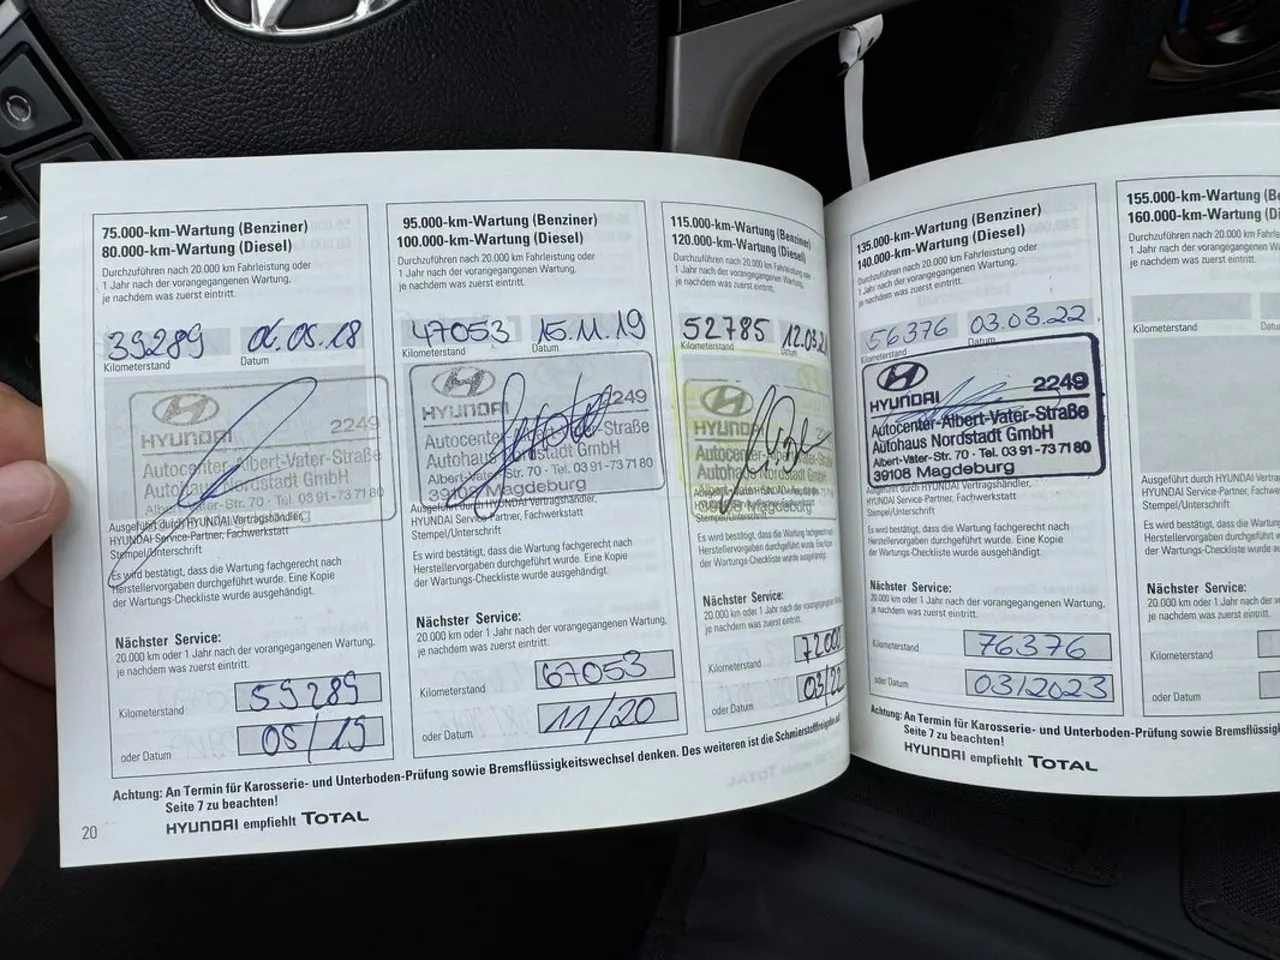 75.000-km-Wartung (Benziner)
80.000-km-Wartung (Diesel)
Durchzuführen nach 20.000 km Fahrleistung oder
1 Jahr nach der vorangegangenen Wartung,
je nachdem was zuerst eintritt.
39289
Kilometerstand
Datum
HYUNDAI
2249
Autocenter-Albert-Vater-Straße
Autohaus Nordstadt GmbH
Albert-Vater-Str. 70 · Tel. 03 91-73 71 80
Ausgeführt durch HYUNDAI Vertragshändler,
HYUNDAI Service-Partner, Fachwerkstatt
Stempel/Unterschrift
Es wird bestätigt, dass die Wartung fachgerecht nach
Herstellervorgaben durchgeführt wurde. Eine Kopie
der Wartungs-Checkliste wurde ausgehändigt.
Nächster Service:
20.000 km oder 1 Jahr nach der vorangegangenen Wartung,
je nachdem was zuerst eintritt.
Kilometerstand
59289
oder Datum
05/19
95.000-km-Wartung (Benziner)
100.000-km-Wartung (Diesel)
Durchzuführen nach 20.000 km Fahrleistung oder
1 Jahr nach der vorangegangenen Wartung,
je nachdem was zuerst eintritt.
47053 15.11.19
Kilometerstand
Datum
HYUNDAI
2249
Autocenter-Albert-Vater-Straße
Autohaus Nordstadt GmbH
Albert-Vater-Str. 70 · Tel. 03 91-73 71 80
39108 Magdeburg
Ausgeführt durch HYUNDAI Vertragshändler,
HYUNDAI Service-Partner, Fachwerkstatt
Stempel/Unterschrift
Es wird bestätigt, dass die Wartung fachgerecht nach
Herstellervorgaben durchgeführt wurde. Eine Kopie
der Wartungs-Checkliste wurde ausgehändigt.
Nächster Service:
20.000 km oder 1 Jahr nach der vorangegangenen Wartung,
je nachdem was zuerst eintritt.
Kilometerstand
67053
oder Datum
11/20
115.000-km-Wartung (Benziner)
120.000-km-Wartung (Diesel)
Durchzuführen nach 20.000 km Fahrleistung oder
1 Jahr nach der vorangegangenen Wartung,
je nachdem was zuerst eintritt.
52785
Kilometerstand
Datum
HYUNDAI
Autocenter-Albert-Vater-
Autohaus Nordstadt GmbH
39108 Magdeburg
HYUNDAI Service-Partner, Fachwerkstatt
Stempel/Unterschrift
Es wird bestätigt, dass die Wartung fachgerecht nach
Herstellervorgaben durchgeführt wurde. Eine Kopie
der Wartungs-Checkliste wurde ausgehändigt.
Nächster Service:
20.000 km oder 1 Jahr nach der vorangegangenen Wartung,
je nachdem was zuerst eintritt.
Kilometerstand
oder Datum
03/22
Achtung: An Termin für Karosserie- und Unterboden-Prüfung sowie Bremsflüssigkeitswechsel denken. Des weiteren ist die Schmierstofffreigabe auf
Seite 7 zu beachten!
HYUNDAI empfiehlt TOTAL
20
135.000-km-Wartung (Benziner)
140.000-km-Wartung (Diesel)
Durchzuführen nach 20.000 km Fahrleistung oder
1 Jahr nach der vorangegangenen Wartung,
je nachdem was zuerst eintritt.
56376 03.03.22
Kilometerstand
Datum
HYUNDAI
2249
Autocenter-Albert-Vater-Straße
Autohaus Nordstadt GmbH
Albert-Vater-Str. 70 · Tel. 03 91-73 71 80
39108 Magdeburg
Ausgeführt durch HYUNDAI Vertragshändler,
HYUNDAI Service-Partner, Fachwerkstatt
Stempel/Unterschrift
Es wird bestätigt, dass die Wartung fachgerecht nach
Herstellervorgaben durchgeführt wurde. Eine Kopie
der Wartungs-Checkliste wurde ausgehändigt.
Nächster Service:
20.000 km oder 1 Jahr nach der vorangegangenen Wartung,
je nachdem was zuerst eintritt.
Kilometerstand
76376
oder Datum
03/2023
155.000-km-Wartung (Benzin
160.000-km-Wartung (D
Durchzuführen nach 20.000 km Fahr
1 Jahr nach der vorangegangenen
je nachdem was zuerst eintritt.
Kilometerstand
Ausgeführt durch HYUNDAI Vertra
HYUNDAI Service-Partner, Fachw
Stempel/Unterschrift
Es wird bestätigt, dass die W
Herstellervorgaben durchgef
der Wartungs-Checkliste wu
Nächster Service:
20.000 km oder 1 Jahr nach der
je nachdem was zuerst eintritt.
Kilometerstand
oder Datum
Achtung: An Termin für Karosserie- und Unterboden-Prüfung sowie Bremsflüssig
Seite 7 zu beachten!
HYUNDAI empfiehlt TOTAL